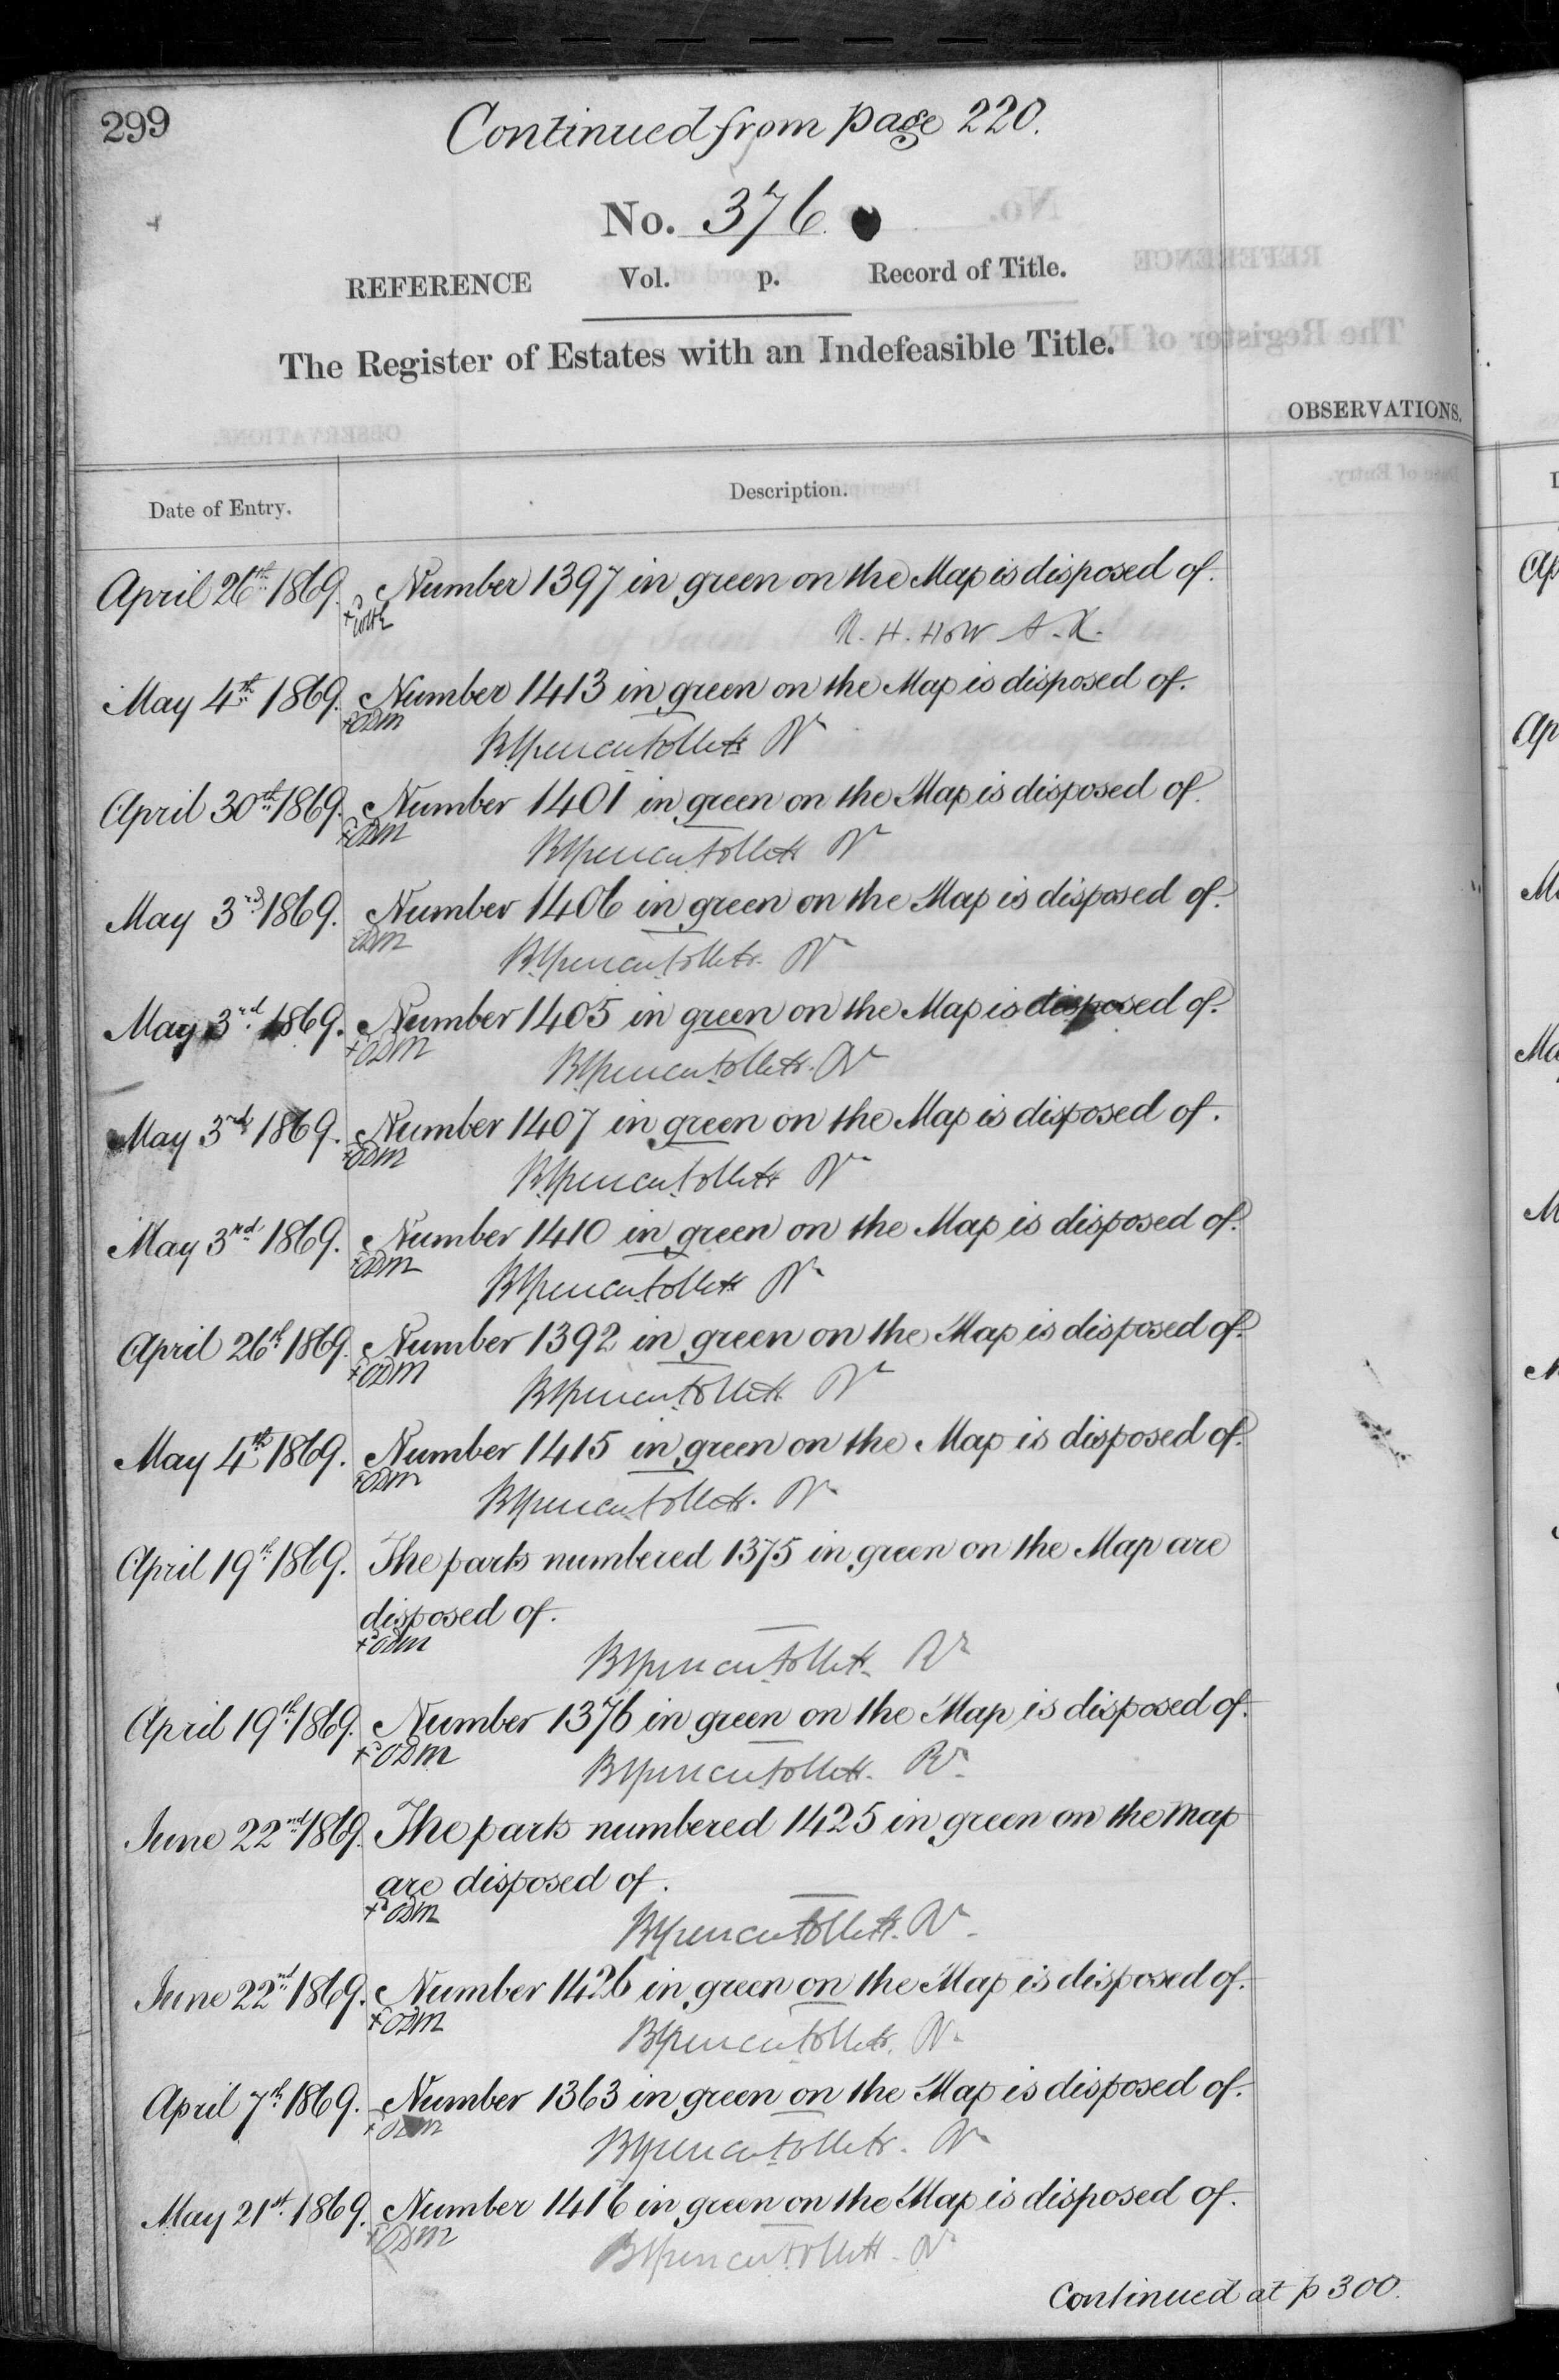 299
Continued from page 220.
No. 376
REFERENCE Vol. p. Record of Title.
The Register of Estates with an Indefeasible Title.
OBSERVATIONS.
Date of Entry. Description.
April 26th 1869. Number 1397 in green on the Map is disposed of.
May 4th 1869. Number 1413 in green on the Map is disposed of.
+ ODM
April 30th 1869. Number 1401 in green on the Map is disposed of.
+ ODM
May 3rd 1869. Number 1406 in green on the Map is disposed of.
ODM
May 3rd 1869. Number 1405 in green on the Map is disposed of.
+ ODM
May 3rd 1869. Number 1407 in green on the Map is disposed of.
+ ODM
May 3rd 1869. Number 1410 in green on the Map is disposed of.
ODM
April 26th 1869. Number 1392 in green on the Map is disposed of.
+ ODM
May 4th 1869. Number 1415 in green on the Map is disposed of.
ODM
April 19th 1869. The parts numbered 1375 in green on the Map are
disposed of.
+ ODM
April 19th 1869. Number 1376 in green on the Map is disposed of.
+ ODM
June 22nd 1869. The parts numbered 1425 in green on the Map
are disposed of.
+ ODM
June 22nd 1869. Number 1426 in green on the Map is disposed of.
+ ODM
April 7th 1869. Number 1363 in green on the Map is disposed of.
ODM
May 21st 1869. Number 1416 in green on the Map is disposed of.
ODM
Continued at p 300.